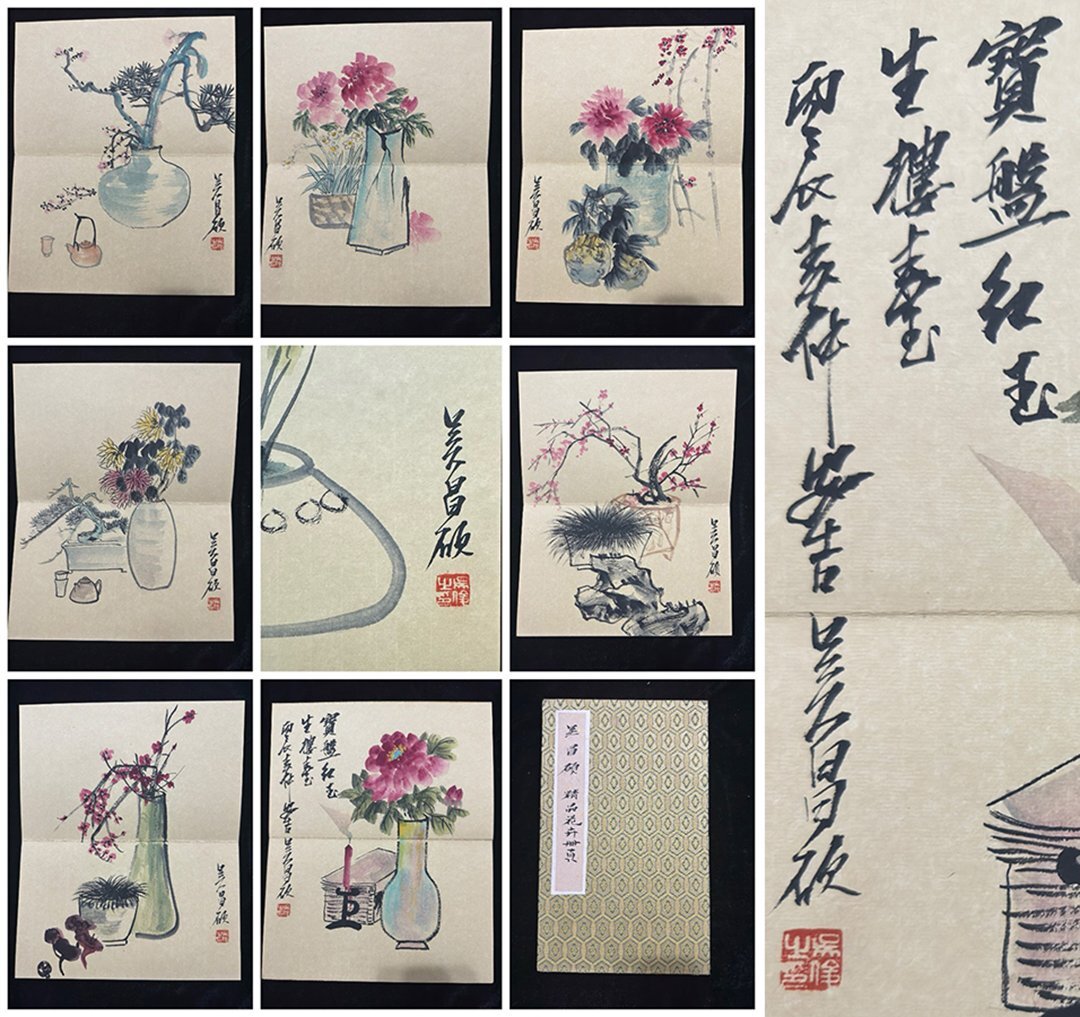 吴昌硕
吴昌硕
吴昌硕
吴昌硕
吴昌硕
吴俊之印
吴昌硕
吴昌硕
寶盤红玉
生樓臺
丙辰春仲 安吉 吴昌硕
吴昌硕 精品花卉册页
寶盤红玉
生樓臺
丙辰春仲 安吉 吴昌硕
吴俊之印